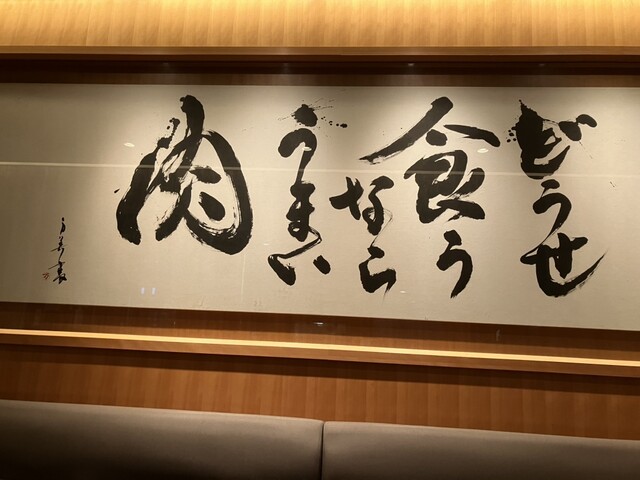 どうせ
食う
なら
うまい
肉